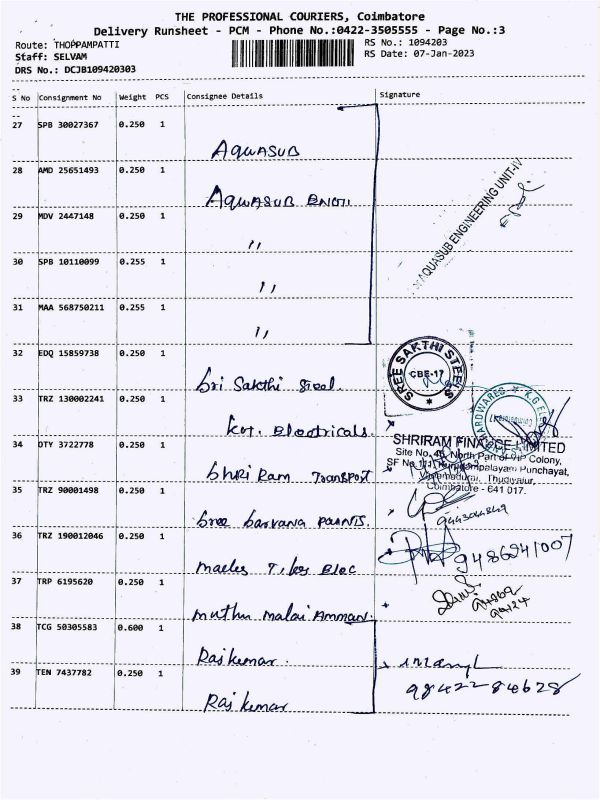 THE PROFESSIONAL COURIERS, Coimbatore
Delivery Runsheet - PCM - Phone No.:0422-3505555 - Page No.:3
Route: THOPPAMPATTI
RS No.: 1094203
Staff: SELVAM
RS Date: 07-Jan-2023
DRS No.: DCJB109420303
S No Consignment No Weight PCS Consignee Details Signature
27 SPB 30027367 0.250 1
AQUASUB
28 AMD 25651493 0.250 1
AQUASUB ENGG.
29 MDV 2447148 0.250 1
"
AQUASUB ENGINEERING UNIT-IV
30 SPB 10110099 0.255 1
"
31 MAA 568750211 0.255 1
"
32 EDQ 15859738 0.250 1
Sri Sakthi Steel.
SREE SAKTHI STEELS
CBE-17
33 TRZ 130002241 0.250 1
Electricals.
HARDWARES * K.G.
34 DTY 3722778 0.250 1
Shri Ram Transport
SHRIRAM FINANCE LIMITED
Site No. 45, North Part of VIP Colony,
SF No. Punchayat,
Thudiyalur,
Coimbatore - 641 017.
35 TRZ 90001498 0.250 1
Sree Sarvana Paints.
36 TRZ 190012046 0.250 1
9486241007
37 TRP 6195620 0.250 1
Muthu Malai Amman.
38 TCG 50305583 0.600 1
Rajkumar.
39 TEN 7437782 0.250 1
Rajkumar
98422 84628